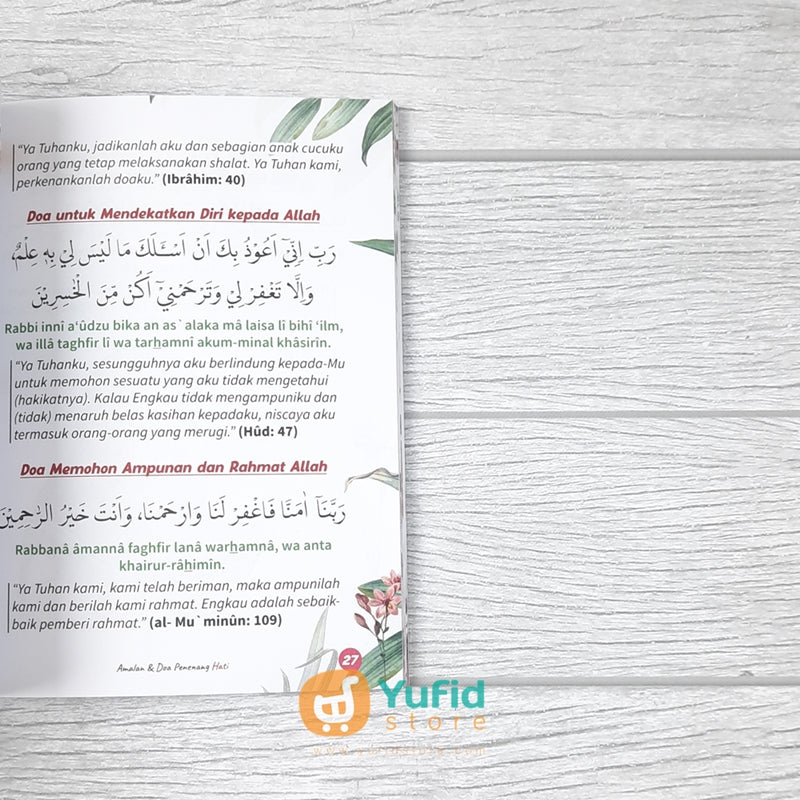 "Ya Tuhanku, jadikanlah aku dan sebagian anak cucuku
orang yang tetap melaksanakan shalat. Ya Tuhan kami,
perkenankanlah doaku." (Ibrâhim: 40)
Doa untuk Mendekatkan Diri kepada Allah
رَبِّ اِنِّيْٓ اَعُوْذُ بِكَ اَنْ اَسْـَٔلَكَ مَا لَيْسَ لِيْ بِهٖ عِلْمٌ،
وَاِلَّا تَغْفِرْ لِيْ وَتَرْحَمْنِيْٓ اَكُنْ مِّنَ الْخٰسِرِيْنَ
Rabbi innî a'ûdzu bika an as`alaka mâ laisa lî bihî 'ilm,
wa illâ taghfir lî wa tarhamnî akum-minal khâsirîn.
"Ya Tuhanku, sesungguhnya aku berlindung kepada-Mu
untuk memohon sesuatu yang aku tidak mengetahui
(hakikatnya). Kalau Engkau tidak mengampuniku dan
(tidak) menaruh belas kasihan kepadaku, niscaya aku
termasuk orang-orang yang merugi." (Hûd: 47)
Doa Memohon Ampunan dan Rahmat Allah
رَبَّنَآ اٰمَنَّا فَاغْفِرْ لَنَا وَارْحَمْنَا، وَاَنْتَ خَيْرُ الرّٰحِمِيْنَ
Rabbanâ âmannâ faghfir lanâ warhamnâ, wa anta
khairur-râhimîn.
"Ya Tuhan kami, kami telah beriman, maka ampunilah
kami dan berilah kami rahmat. Engkau adalah sebaik-
baik pemberi rahmat." (al- Mu`minûn: 109)
Amalan & Doa Penenang Hati
27
Yufid
store